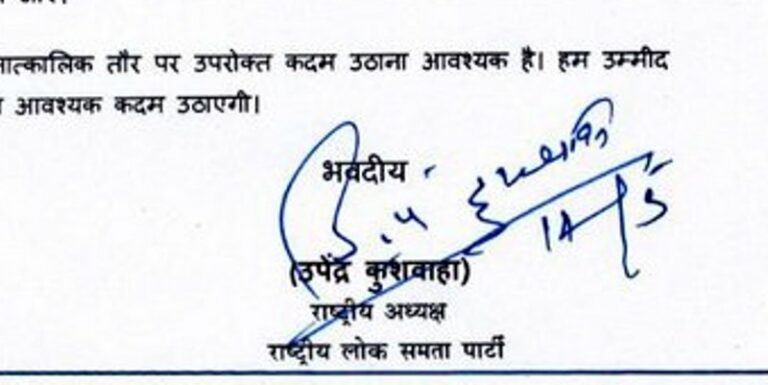 तात्कालिक तौर पर उपरोक्त कदम उठाना आवश्यक है। हम उम्मीद
आवश्यक कदम उठाएगी।
भवदीय
14/5
(उपेंद्र कुशवाहा)
राष्ट्रीय अध्यक्ष
राष्ट्रीय लोक समता पार्टी